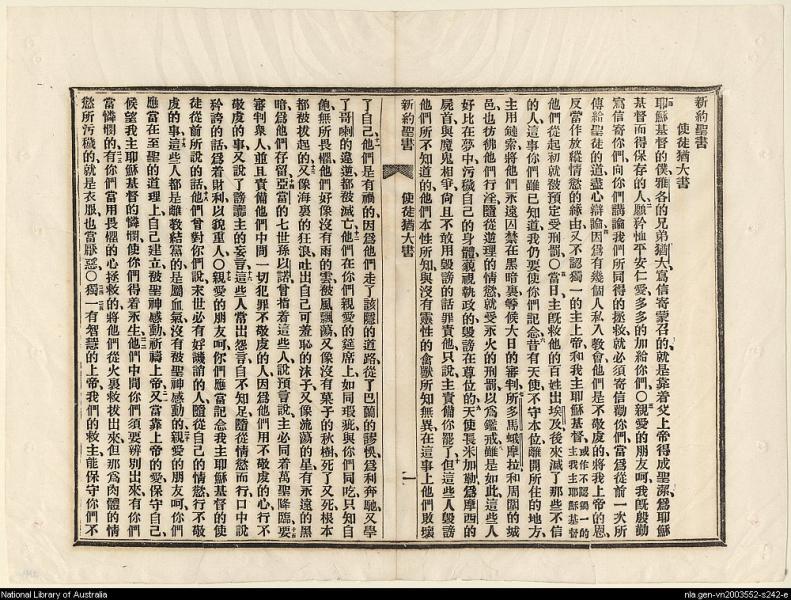 新約聖書
使徒猶大書
耶穌基督的僕雅各的兄弟猶大寫信寄蒙召的就是靠着父上帝得成聖潔爲耶穌
基督而得保存的人願矜恤平安仁愛多多的加給你們〇親愛的朋友呵我旣殷勤
寫信寄你們向你們講論我們所同得的拯救就必須寄信勸你們當爲從前一次所
傳給聖徒的道盡心辯論因爲有幾個人私入教會他們是不敬虔的將我上帝的恩
反當作放縱情慾的緣由又不認獨一的主上帝和我主耶穌基督或作不認獨一的主我主耶穌基督
他們從起初就被預定受刑罰〇當日主旣救他的百姓出埃及後來滅了那些不信
的人這事你們雖已知道我仍要使你們記念昔有天使不守本位離開所住的地方
主用鏈索將他們永遠囚禁在黑暗裏等候大日的審判所多馬蛾摩拉和周圍的城
邑也彷彿他們行淫隨從逆理的情慾就受永火的刑罰以爲鑑戒雖是如此這些人
好比在夢中污穢自己的身體藐視執政的毀謗在尊位的天使長米加勒爲摩西的
屍首與魔鬼相爭尙且不敢用毀謗的話罪責他只說主責備你罷了但這些人毀謗
他們所不知道的他們本性所知與沒有靈性的禽獸所知無異在這事上他們敗壞
新約聖書 使徒猶大書 一
了自己他們是有禍的因爲他們走了該隱的道路從了巴蘭的謬悞爲利奔馳又學
了哥喇的違逆都被滅亡他們在你們親愛的筵席上如同瑕疵與你們同吃只知自
飽無所畏懼他們好像沒有雨的雲被風飄蕩又像沒有菓子的秋樹死了又死根本
都被拔起的又像海裏的狂浪吐出自己可羞恥的沫子又像流蕩的星有永遠的黑
暗爲他們存留亞當的七世孫以諾曾指着這些人說預言說主必同着萬聖降臨要
審判衆人並且責備他們中間一切犯罪不敬虔的人因爲他們用不敬虔的心行不
敬虔的事又說了謗讟主的妄言這些人常出怨言自不知足隨從情慾而行口中說
矜誇的話爲着財利以貌重人〇親愛的朋友呵你們應當記念我主耶穌基督的使
徒從前所說的話他們曾對你們說末世必有好譏誚的人隨從自己的情慾行不敬
虔的事這些人都是離敎結黨的是屬血氣沒有被聖神感動的親愛的朋友呵你們
應當在至聖的道理上自己建立被聖神感動祈禱上帝又當靠上帝的愛保守自己
候望我主耶穌基督的憐憫使你們得着永生他們中間你們須要辨別出來有你們
當憐憫的有你們當用畏懼的心拯救的將他們從火裏救拔出來但那爲肉體的情
慾所污穢的就是衣服也當厭惡〇獨一有智慧的上帝我們的救主能保守你們不
National Library of Australia
nla.gen-vn2003552-s242-e